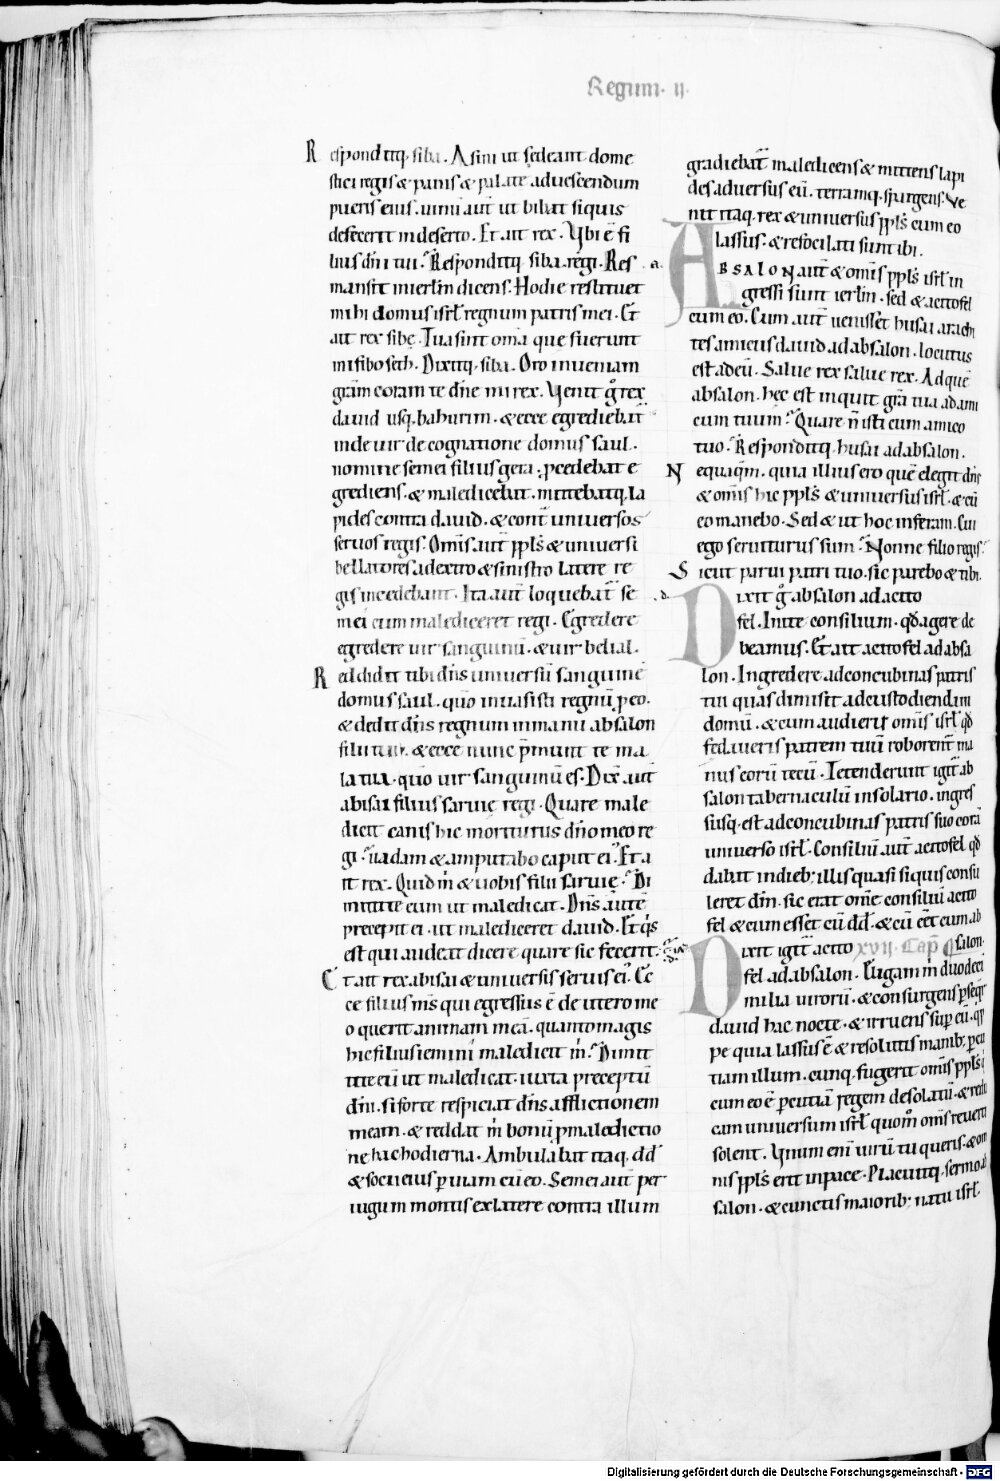 Regum · ii ·
Responditq; siba · Asini ut sedeant dome
stici regis & panis & palate aduescendum
pueris eius · uinū aut̄ ut bibat siquis
defecerit indeserto · Et ait rex · Vbi ē fi
lius dn̄i tui · Responditq; siba · regi · Res
mansit inierlm̄ dicens · Hodie restituet
mihi domus isrl̄ regnum patris mei · Et
ait rex sibę · Tua sint om̄a que fuerunt
mifiboseth · Dixitq; siba · Oro inueniam
gr̄am coram te dn̄e mi rex · Venit gͦ rex
dauid usq; bahurim · & ecce egrediebat̄
inde uir de cognatione domus saul ·
nomine semei filius gera · p̄cedebat e
grediens · & maledicebat · mittebatq; la
pides contra dauid · & cont̄ uniuersos
seruos regis · Om̄s aut̄ ppl̄s & uniuersi
bellatores adextro & sinistro latere re
gis incedebant · Ita aut̄ loquebat̄ se
mei cum malediceret regi · Egredere
egredere uir sanguinū · & uir belial ·
Reddidit tibi dn̄s uniuersū sanguinē
domus saul · quō inuasisti regnū p eo ·
& dedit dn̄s regnum inmanu absalon
filii tui · & ecce nunc p̄munt te ma
la tua · quō uir sanguinū es · Dix̄ aut̄
abisai filius saruię regi · Quare male
dicit canis hic moriturus dn̄o meo re
gi · uadam & amputabo caput ei᾽ · Et a
it rex · Quid m̄ & uobis filii saruię · Di
mittite eum ut maledicat · Dn̄s autē
precepit ei · ut malediceret dauid · Et q̄s
est qui audeat dicere quare sic fecerit ·
Et ait rex abisai & uniuersis seruis ei᾽ · Ec
ce filius m̄s qui egressus ē de utero me
o querit animam meā · quanto magis
hic filius iemini maledicit m̄ · Dimit
tite eū ut maledicat · iuxta preceptū
dn̄i · si forte respiciat dn̄s afflictionem
meam · & reddat m̄ bonū p maledictio
ne hac hodierna · Ambulabat itaq; dd̄
& socii eius p uiam cū eo · Semei aut̄ per
iugum montis exlatere contra illum
gradiebat̄ maledicens & mittens lapi
des aduersus eū · terramq; spargens · Ve
nit itaq; rex & uniuersus ppl̄s cum eo
lassus · & refocilati sunt ibi ·
ABSALON aut̄ & om̄is ppl̄s isrl̄ in
gressi sunt ierlm̄ · sed & acitofel
cum eo · Cum aut̄ uenisset husai arachi
tes amicus dauid ad absalon · locutus
est adeū · Salue rex salue rex · Ad quē
absalon · hec est inquit gr̄a tua ad ami
cum tuum · Quare n̄ isti cum amico
tuo · Responditq; husai ad absalon ·
Nequaq̄m · quia illius ero quē elegit dn̄s
& om̄is hic ppl̄s & uniuersus isrl̄ · & cū
eo manebo · Sed & ut hoc inferam · Cui
ego seruiturus sum · Nonne filio regis ·
Sicut parui patri tuo · sic parebo & tibi ·
Dixit gͦ absalon ad acito
fel · Inite consilium · qd̄ agere de
beamus · Et ait acitofel ad absa
lon · Ingredere ad concubinas patris
tui quas dimisit ad custodiendam
domū · & cum audierit om̄is isrl̄ qd̄
fedaueris patrem tuū roborent̄ ma
nus eorū tecū · Tetenderunt igit̄ ab
salon tabernaculū insolario · ingres
susq; est ad concubinas patris suo corā
uniuerso isrl̄ · Consiliū aut̄ acitofel qd̄
dabat indieb; illis quasi siquis consu
leret dm̄ · sic erat om̄e consiliū acito
fel & cum esset cū dd̄ · & cū eēt cum ab
salon ·
xvii · Cap̄
Dixit igit̄ acito
fel ad absalon · Eligam m̄ duodeci
milia uirorū · & consurgens p̄seqr̄
dauid hac nocte · & irruens sup eū · qp̄
pe quia lassus ē & resolutis manib; pcu
tiam illum · cunq; fugerit om̄is ppl̄s q̄
cum eo ē pcutiā regem desolatū · & redu
cam uniuersum isrl̄ quom̄ om̄s reuerti
solent · Vnum enī uirū tu queris · & om
nis ppl̄s erit inpace · Placuitq; sermo ab
salon · & cunctis maiorib; natu isrl̄ ·
Digitalisierung gefördert durch die Deutsche Forschungsgemeinschaft - DFG